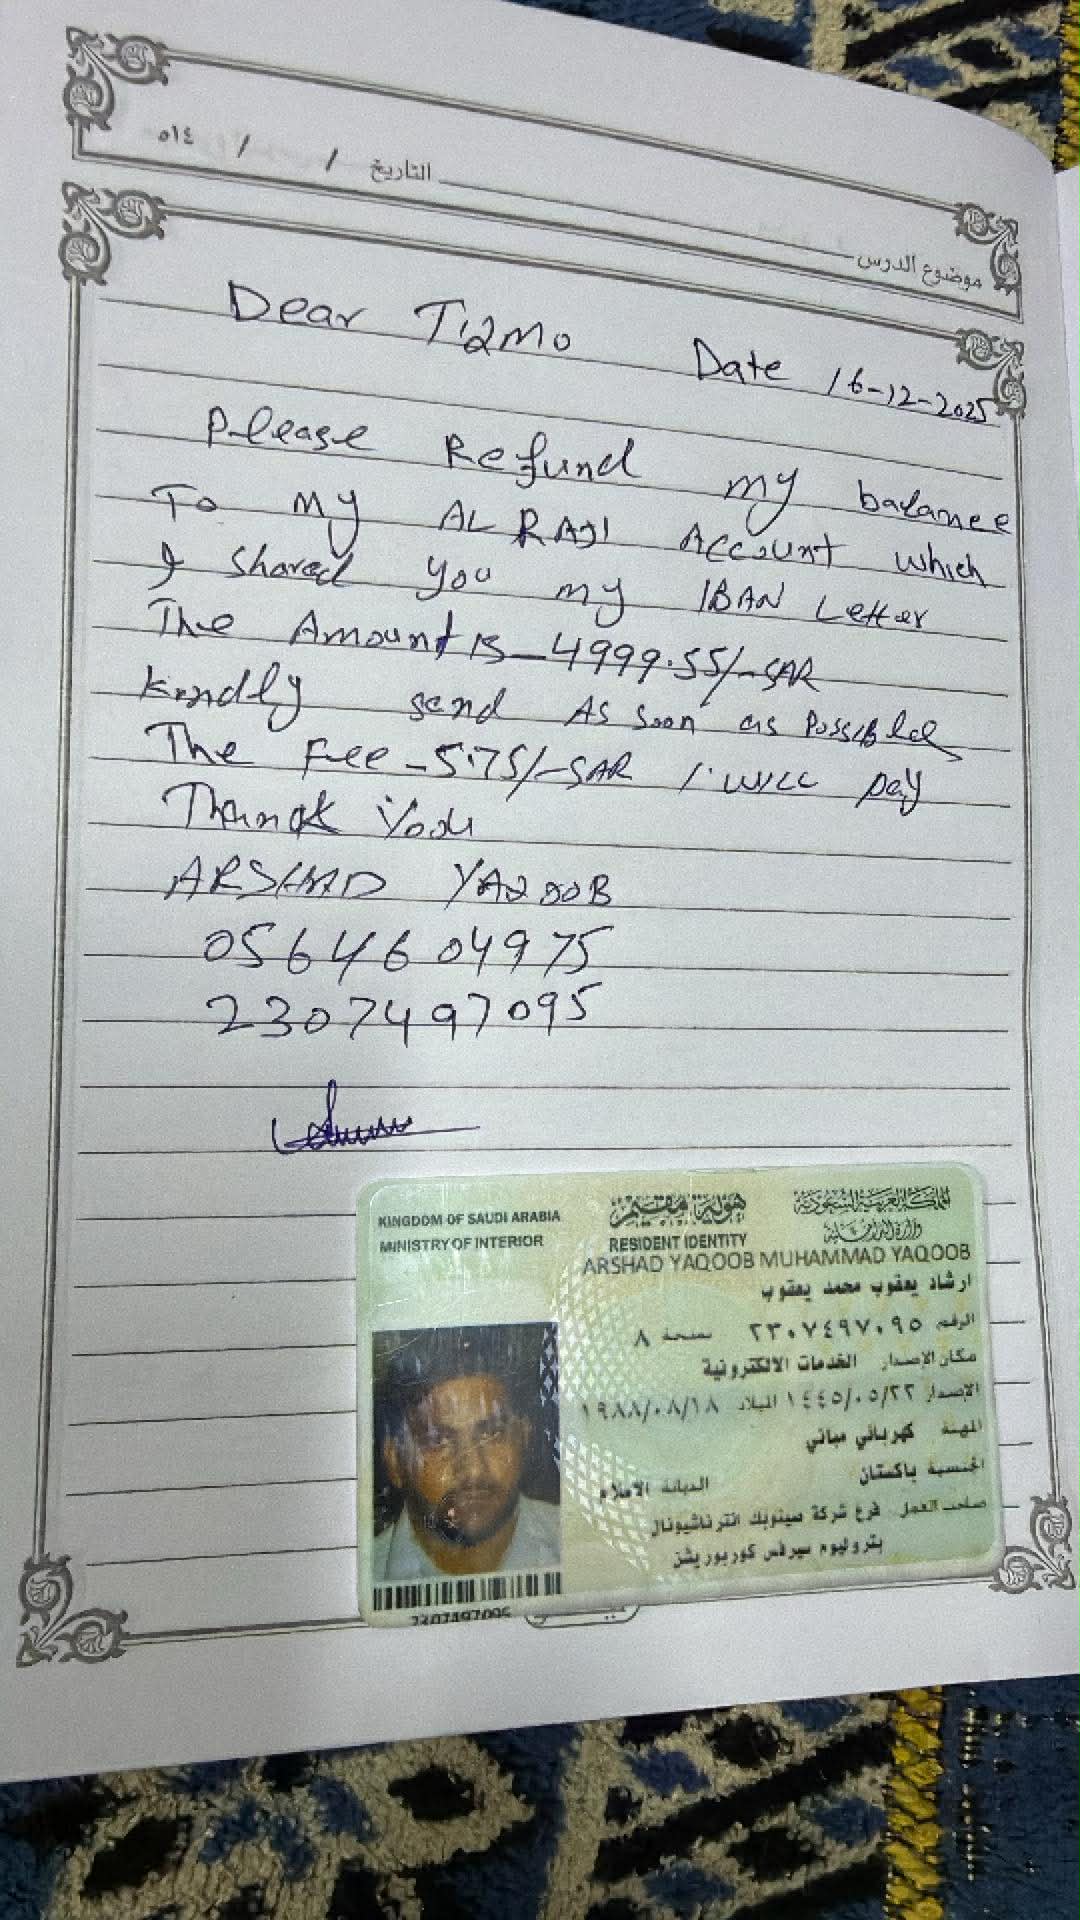 التاريخ / / ١٤٥
موضوع الدرس
Dear Tiqmo Date 16-12-2025
Please Refund my balance
To My AL RAJI Account which
I shared you my IBAN Letter
The Amount is - 4999.55/- SAR
Kindly send As soon as Possible
The Fee - 5.75/- SAR I will pay
Thank You
ARSHAD YAQOOB
0564604975
2307497095
KINGDOM OF SAUDI ARABIA
MINISTRY OF INTERIOR
هوية مقيم
RESIDENT IDENTITY
المملكة العربية السعودية
وزارة الداخلية
ARSHAD YAQOOB MUHAMMAD YAQOOB
ارشاد يعقوب محمد يعقوب
الرقم ٢٣٠٧٤٩٧٠٩٥ نسخة ٨
مكان الإصدار الخدمات الالكترونية
الإصدار ١٤٤٥/٠٥/٢٢ الميلاد ١٩٨٨/٠٨/١٨
المهنة كهربائي مباني
الجنسية باكستان الديانة الاسلام
صاحب العمل فرع شركة سينوبك انترناشيونال
بتروليوم سيرفس كوربوريشن
2307497095